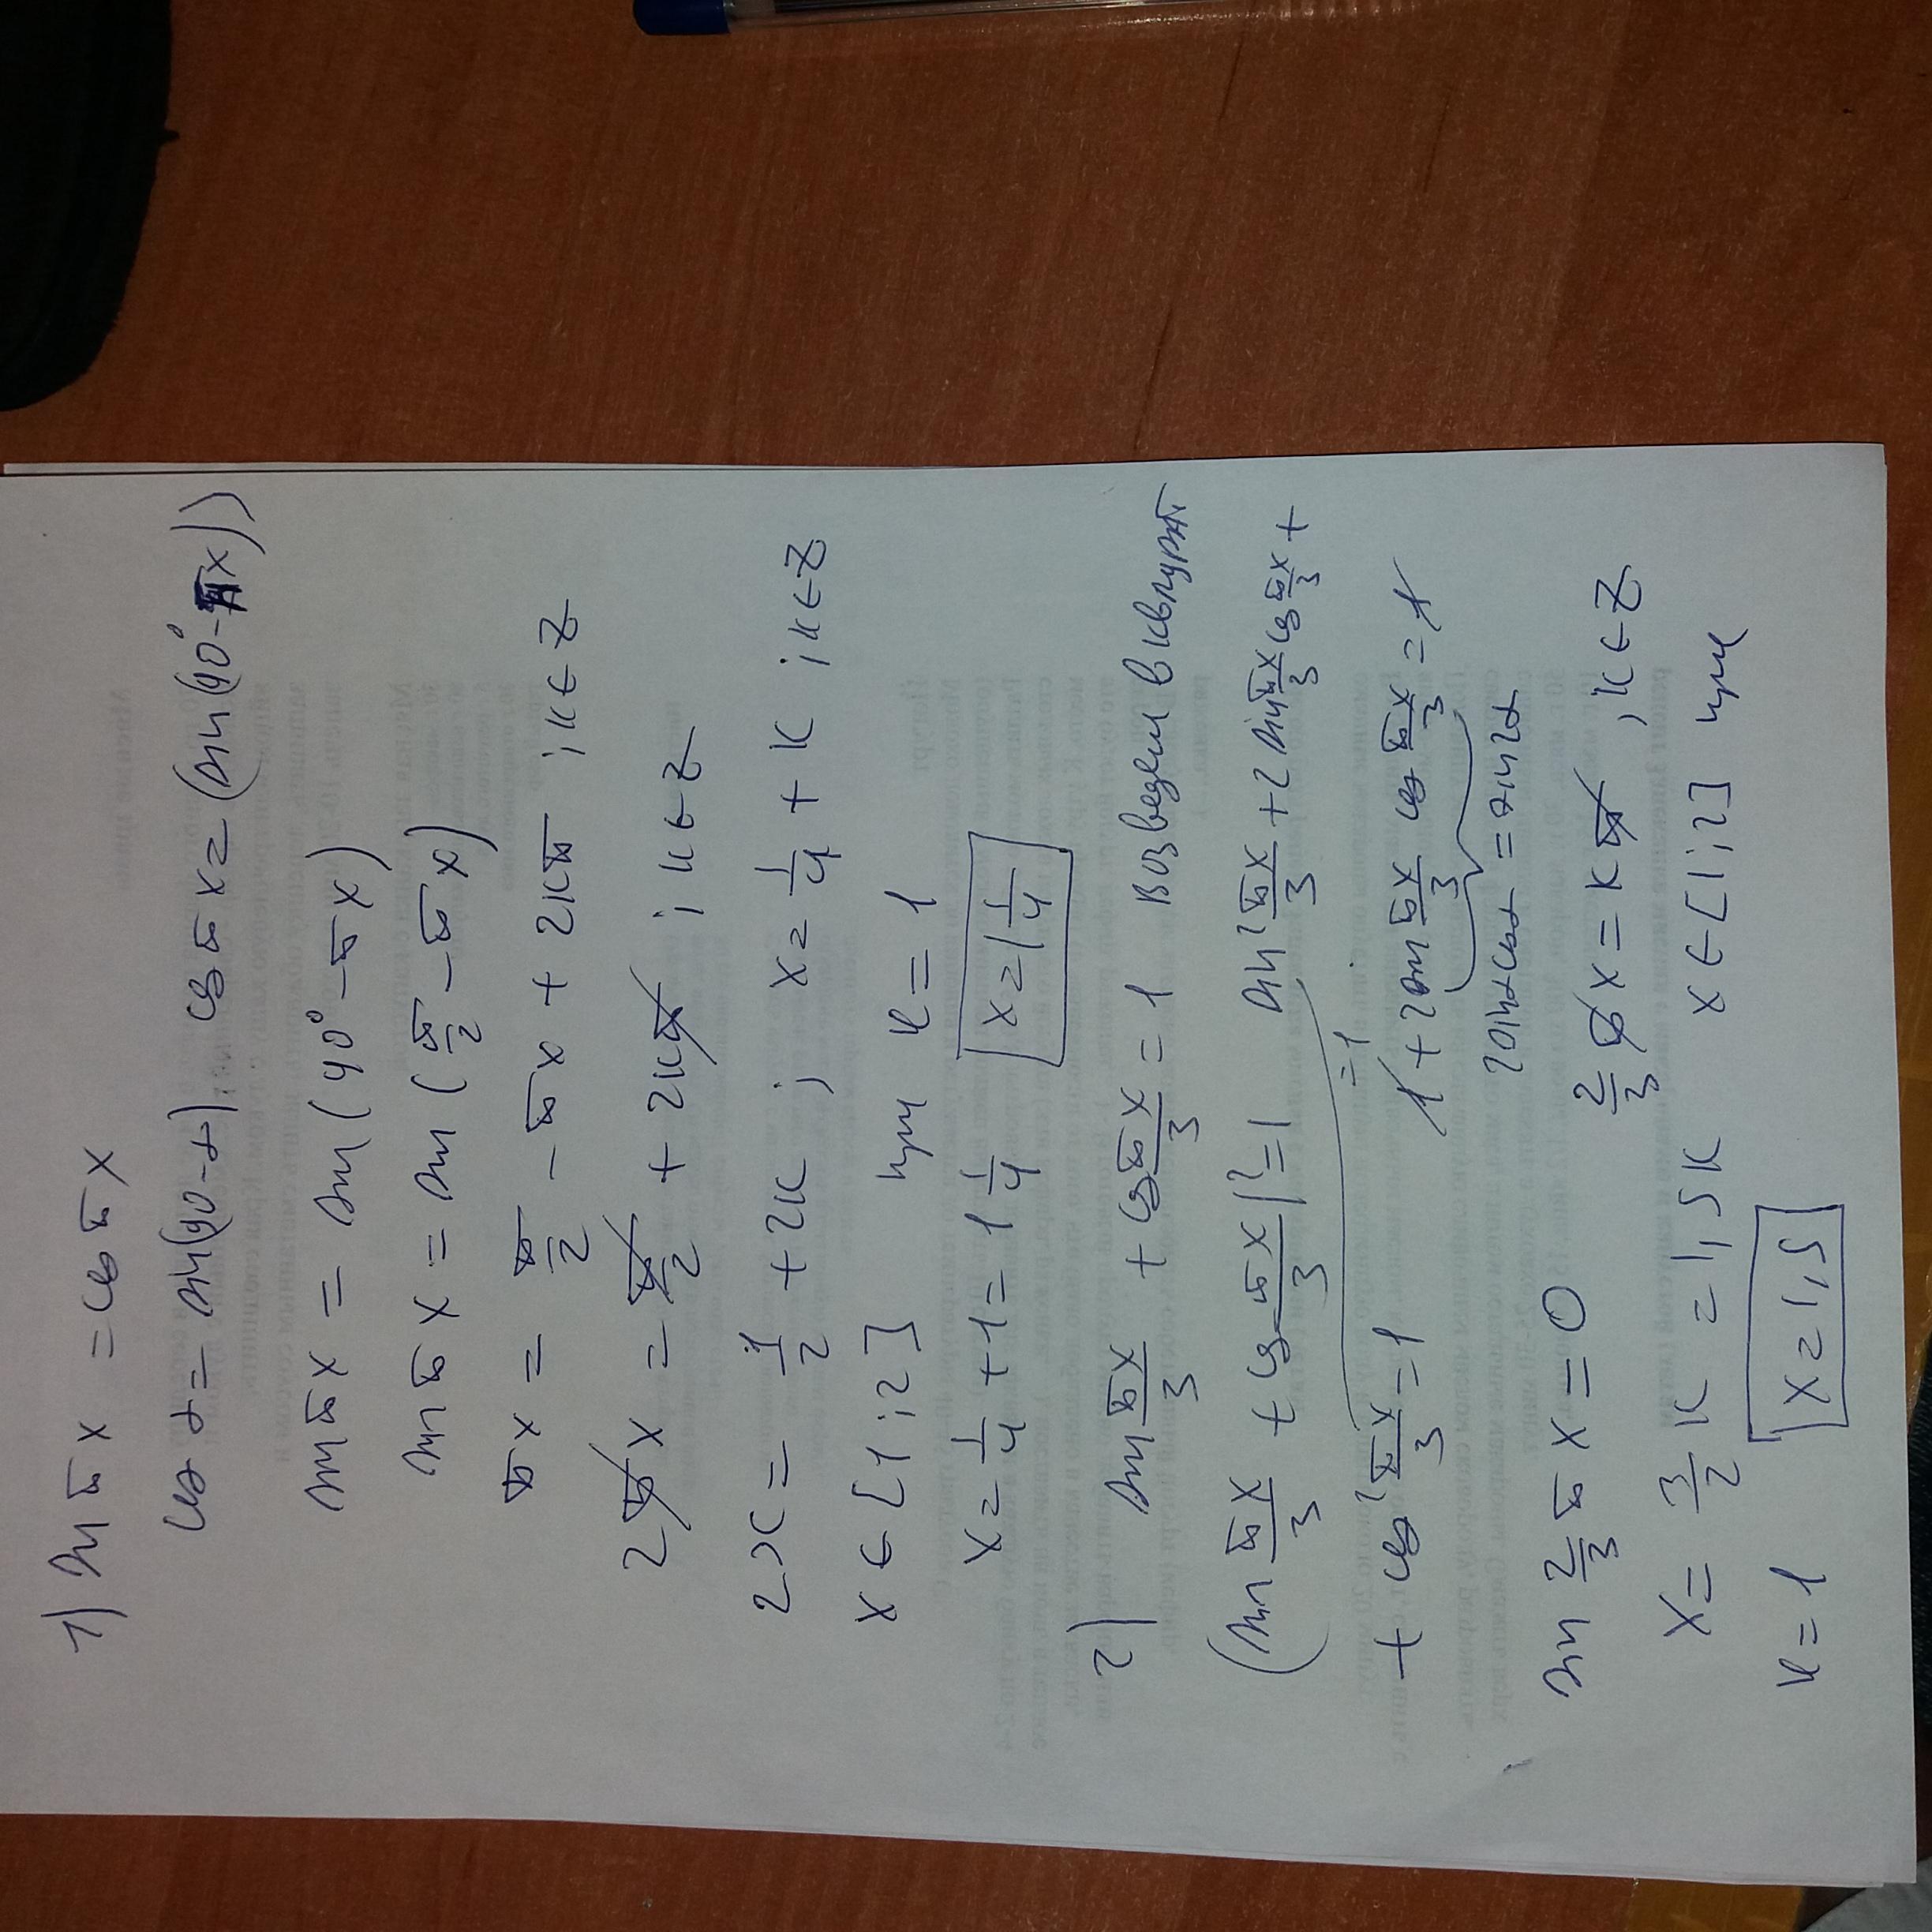 1) sin πx = cos πx
cos α = sin(90-α) cos πx = (sin(90°-πx))
sin πx = sin(90°-πx)
sin πx = sin(π/2 - πx)
πx = π/2 - πx + 2kπ ; k∈Z
2πx = π/2 + 2kπ ; k∈Z
2x = 1/2 + 2k ; x = 1/4 + k ; k∈Z
x ∈ [1;2] при k = 1
x = 1/4 + 1 = 1 1/4 x = 1 1/4
2) sin πx/3 + cos πx/3 = 1 возведем в квадрат
(sin πx/3 + cos πx/3)² = 1 sin² πx/3 + 2 sin πx/3 cos πx/3 +
+ cos² πx/3 = 1 =1 1 + 2 sin πx/3 cos πx/3 = 1
2 sin α cos α = sin 2α
sin 2/3 πx = 0 2/3 πx = kπ , k∈Z
x = 3/2 k = 1,5k x ∈ [1;2] при
k = 1 x = 1,5